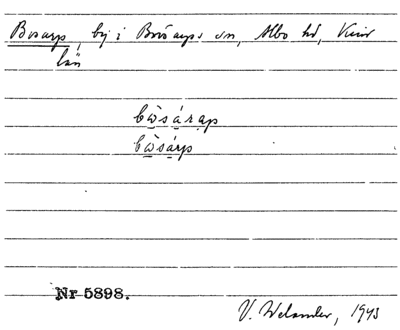 Bosarp, by i Brösarps sn, Albo hd, Krist
län
bo̤sárap
bo̤sárp
Nr 5898.
V. Welander, 1943